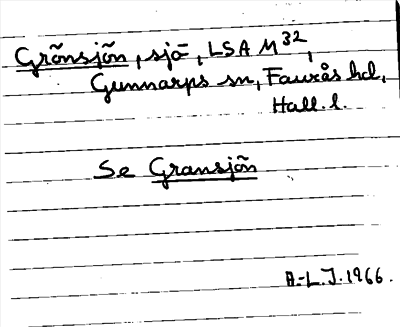 Grönsjön, sjö, LSA M³²,
Gunnarps sn, Faurås hd,
Hall. l.
Se Gransjön
A.-L.J. 1966.